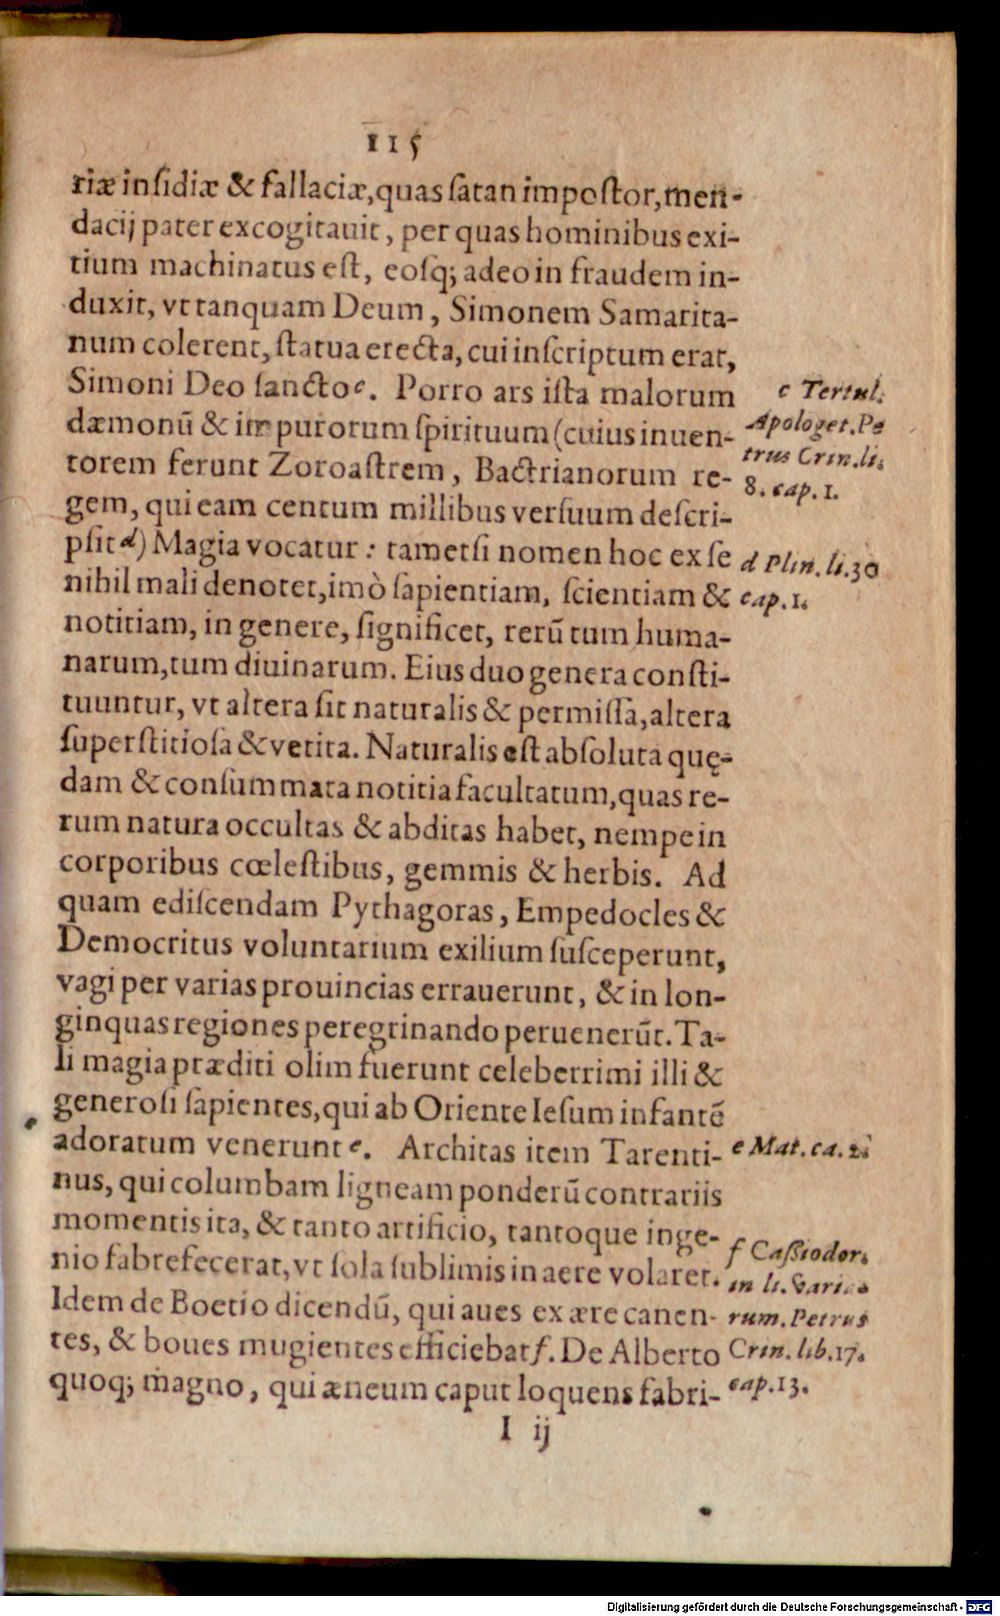 115
riæ insidiæ & fallaciæ, quas satan impostor, men-
dacij pater excogitauit, per quas hominibus exi-
tium machinatus est, eosq; adeo in fraudem in-
duxit, vt tanquam Deum, Simonem Samarita-
num colerent, statua erecta, cui inscriptum erat,
Simoni Deo sancto c. Porro ars ista malorum
c Tertul.
dæmonū & impurorum spirituum (cuius inuen-
Apologet. Pe
torem ferunt Zoroastrem, Bactrianorum re-
trus Crin. li.
gem, qui eam centum millibus versuum descri-
8. cap. 1.
psit d) Magia vocatur: tametsi nomen hoc ex se
d Plin. li. 30
nihil mali denotet, imò sapientiam, scientiam &
cap. 1.
notitiam, in genere, significet, rerū tum huma-
narum, tum diuinarum. Eius duo genera consti-
tuuntur, vt altera sit naturalis & permissa, altera
superstitiosa & vetita. Naturalis est absoluta quę-
dam & consummata notitia facultatum, quas re-
rum natura occultas & abditas habet, nempe in
corporibus cœlestibus, gemmis & herbis. Ad
quam ediscendam Pythagoras, Empedocles &
Democritus voluntarium exilium susceperunt,
vagi per varias prouincias errauerunt, & in lon-
ginquas regiones peregrinando peruenerūt. Ta-
li magia præditi olim fuerunt celeberrimi illi &
generosi sapientes, qui ab Oriente Iesum infantē
adoratum venerunt e. Architas item Tarenti-
e Mat. ca. 2.
nus, qui columbam ligneam ponderū contrariis
momentis ita, & tanto artificio, tantoque inge-
f Cassiodor.
nio fabrefecerat, vt sola sublimis in aere volaret.
in li. Varia-
Idem de Boetio dicendū, qui aues ex ære canen-
rum. Petrus
tes, & boues mugientes efficiebat f. De Alberto
Crin. lib. 17.
quoq; magno, qui æneum caput loquens fabri-
cap. 13.
I ij
Digitalisierung gefördert durch die Deutsche Forschungsgemeinschaft - DFG